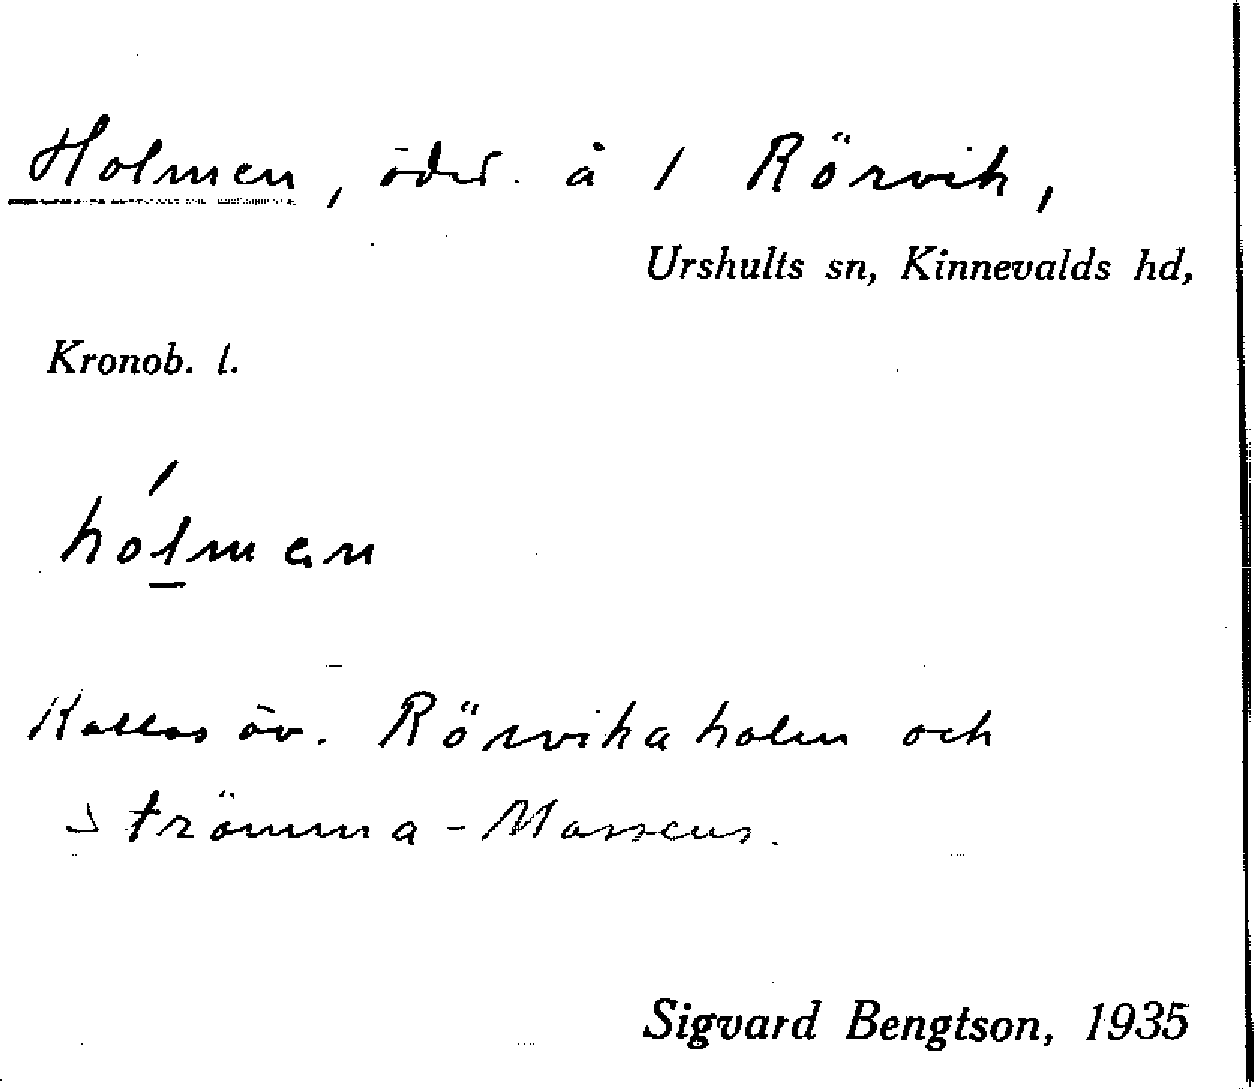 Holmen, ödel. å 1 Rörvik,
Urshults sn, Kinnevalds hd,
Kronob. l.
hólman
Kallas äv. Rörvikaholm och
Strömma-Massens.
Sigvard Bengtson, 1935